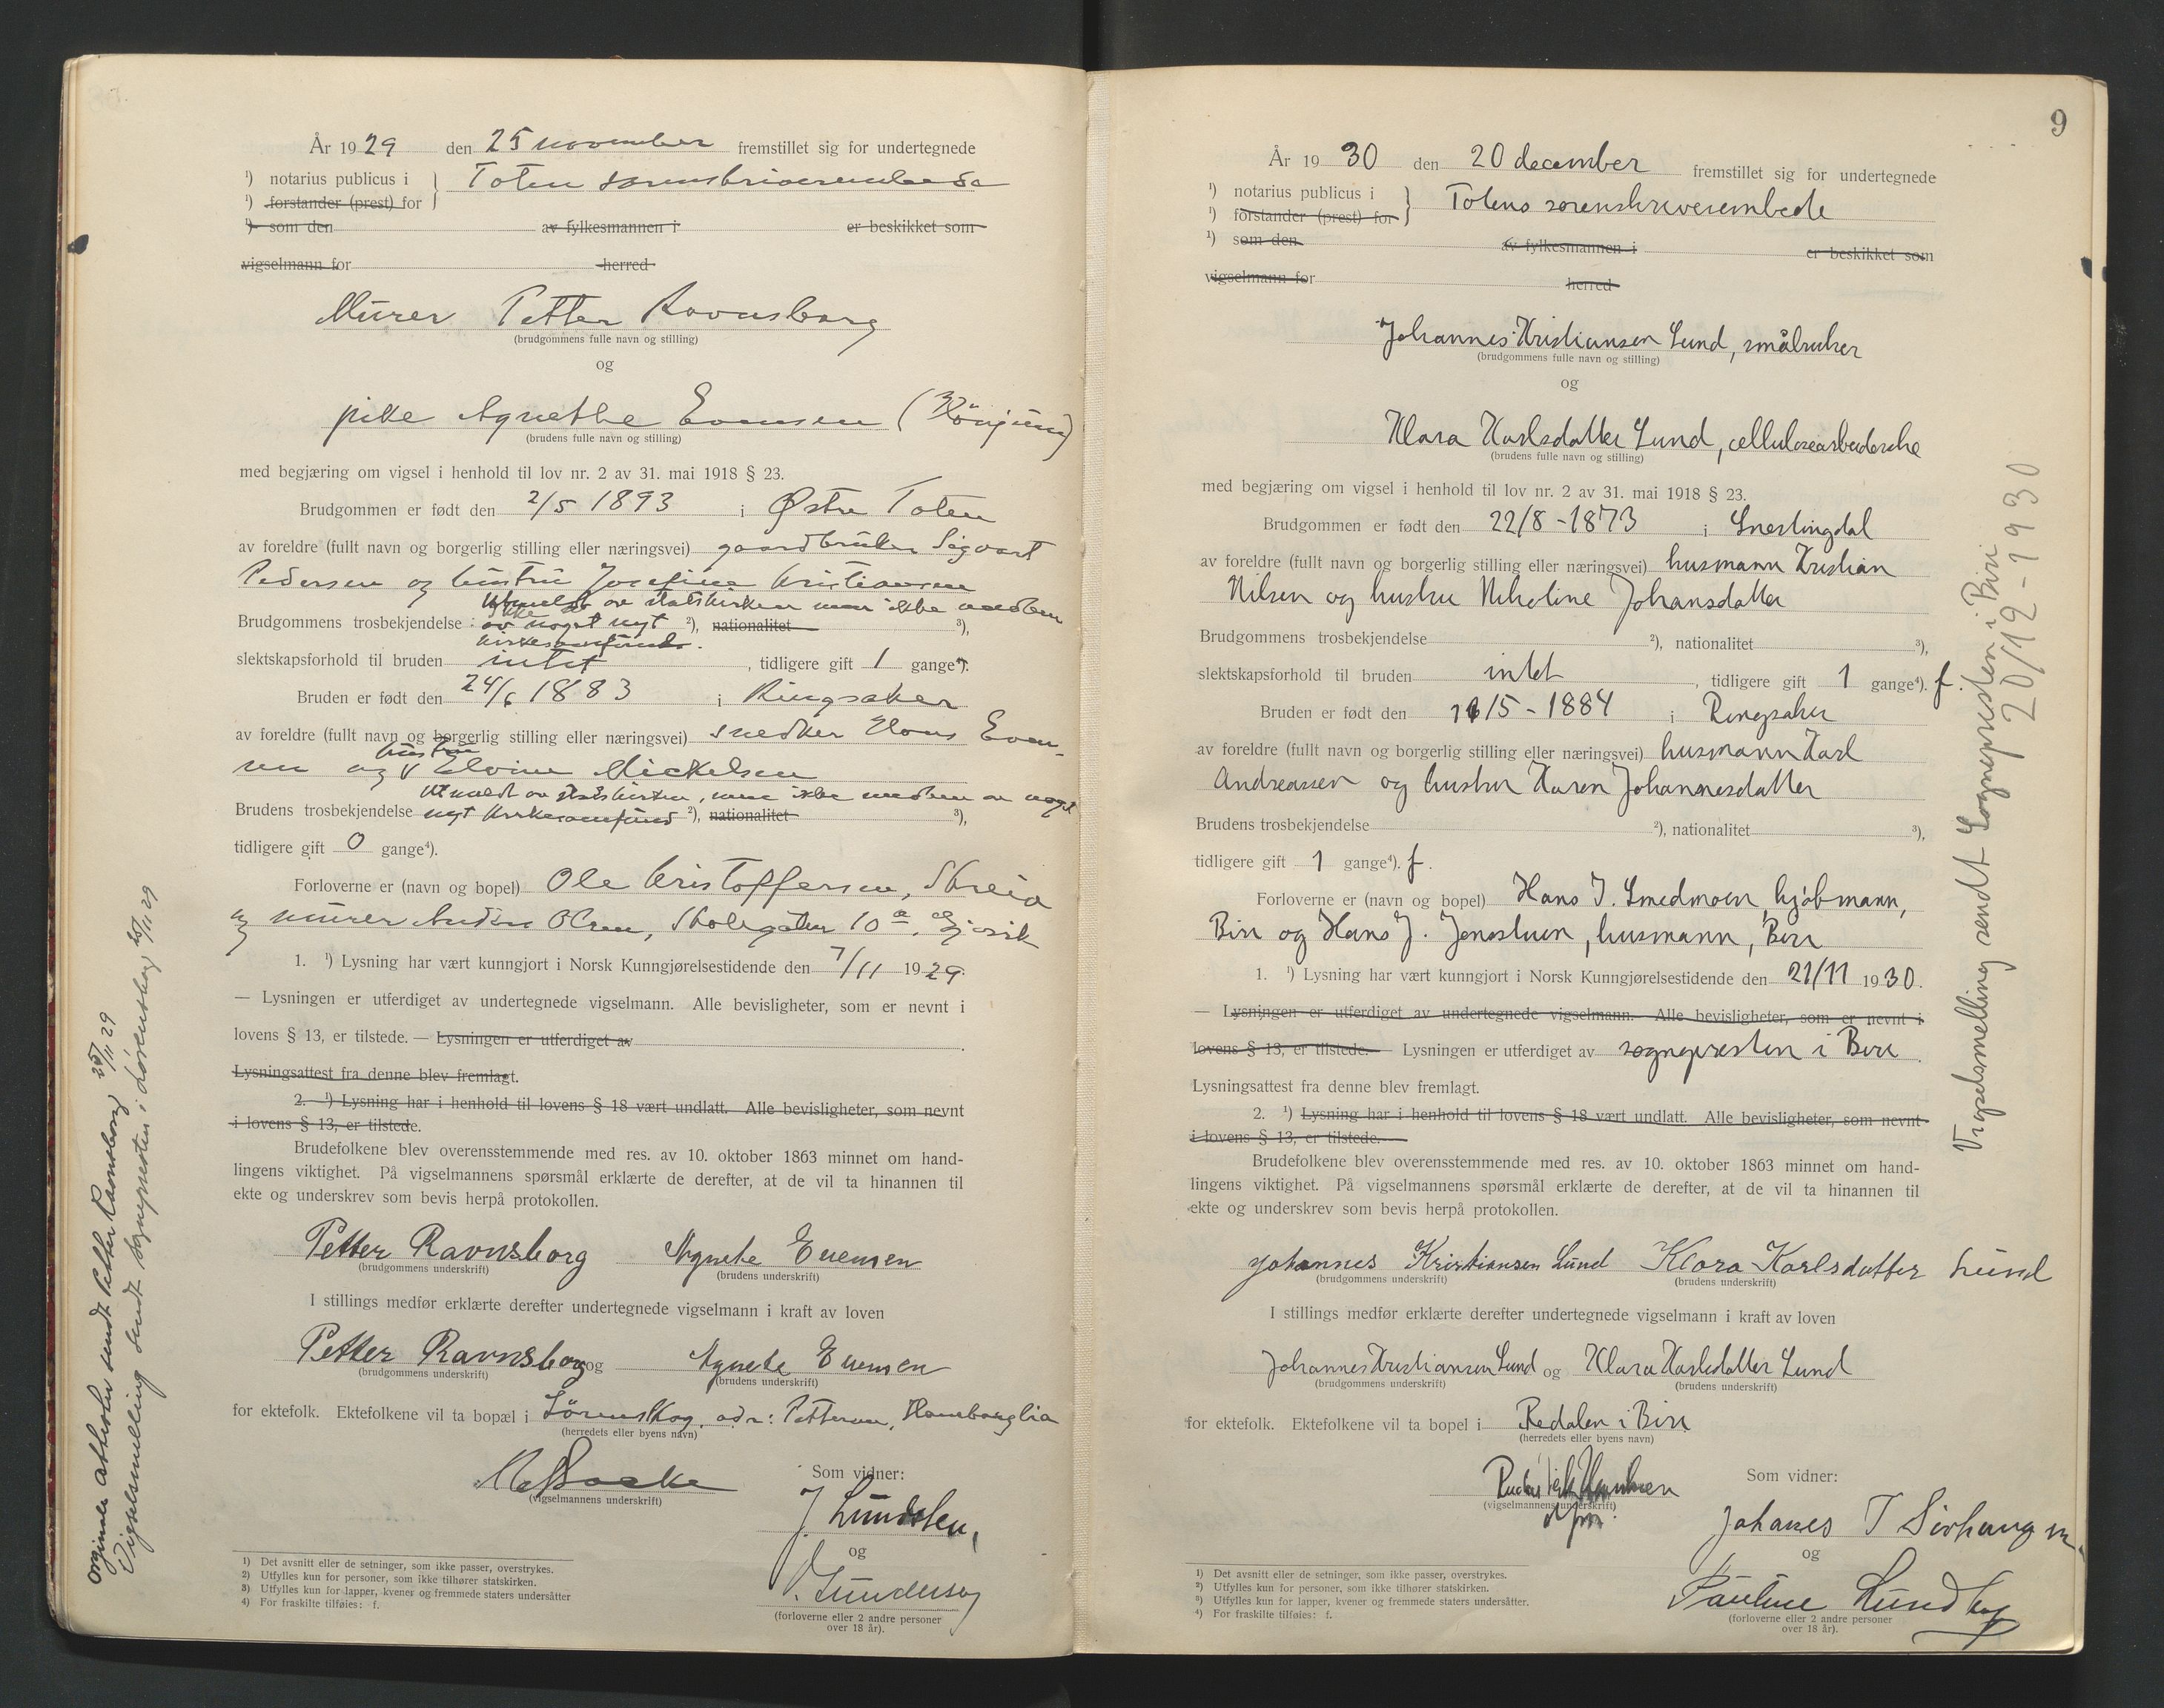 År 1929 den 25 november fremstillet sig for undertegnede
1) notarius publicus i } Toten
1) forstander (prest) for
1) som den av fylkesmannen i er beskikket som
vigselmann for herred
Murer Petter Ravnsborg
(brudgommens fulle navn og stilling)
og
pike Agnethe Evensen
(brudens fulle navn og stilling)
med begjæring om vigsel i henhold til lov nr. 2 av 31. mai 1918 § 23.
Brudgommen er født den 2/5 1893 i Østre Toten
av foreldre (fullt navn og borgerlig stilling eller næringsvei) gaardbruker Sigvart
Pedersen og hustru Josefine Kristiansen
Utmeldt av statskirken men ikke medlem
Brudgommens trosbekjendelse : av noget nyt 2), nationalitet 3),
kirkesamfund.
slektskapsforhold til bruden intet, tidligere gift 1 gange4).
Bruden er født den 24/6 1883 i Ringsaker
av foreldre (fullt navn og borgerlig stilling eller næringsvei) snedker Hans Even-
hustru
sen og Elvine Mickelsen
Utmeldt av statskirken, men ikke medlem av noget
Brudens trosbekjendelse nyt kirkesamfund 2), nationalitet 3),
tidligere gift 0 gange4).
Forloverne er (navn og bopel) Ole Kristoffersen, Skreia
og murer Anders Olsen, Skolegaten 10 a, Gjøvik
1. 1) Lysning har vært kunngjort i Norsk Kunngjørelsestidende den 7/11 1929.
— Lysningen er utferdiget av undertegnede vigselmann. Alle bevisligheter, som er nevnt i
lovens § 13, er tilstede. — Lysningen er utferdiget av .
Lysningsattest fra denne blev fremlagt.
2. 1) Lysning har i henhold til lovens § 18 vært undlatt. Alle bevisligheter, som nevnt
i lovens § 13, er tilstede.
Brudefolkene blev overensstemmende med res. av 10. oktober 1863 minnet om hand-
lingens viktighet. På vigselmannens spørsmål erklærte de derefter, at de vil ta hinannen til
ekte og underskrev som bevis herpå protokollen.
Petter Ravnsborg Agnete Evensen
(brudgommens underskrift) (brudens underskrift)
I stillings medfør erklærte derefter undertegnede vigselmann i kraft av loven
Petter Ravnsborg og Agnete Evensen
(brudgommens underskrift) (brudens underskrift)
for ektefolk. Ektefolkene vil ta bopæl i Lörenskog, adr: Pettersen,
(herredets eller byens navn)
Som vidner:
(vigselmannens underskrift)
J. Lundsten,
og
(forloverne eller 2 andre personer
over 18 år).
1) Det avsnitt eller de setninger, som ikke passer, overstrykes.
2) Utfylles kun for personer, som ikke tilhører statskirken.
3) Utfylles kun for lapper, kvener og fremmede staters undersåtter
4) For fraskilte tilføies: f.
Originale attester sendt Petter Ravnsborg 25/11 29
Vigselsmelling sendt sognepresten i Lørenskog 25/11 29
9
År 1930 den 20 december fremstillet sig for undertegnede
1) notarius publicus i } Totens sorenskriverembede
1) forstander (prest) for
1) som den av fylkesmannen i er beskikket som
vigselmann for herred
Johannes Kristiansen Lund, småbruker
(brudgommens fulle navn og stilling)
og
Klara Karlsdatter Lund, cellulosearbeiderske
(brudens fulle navn og stilling)
med begjæring om vigsel i henhold til lov nr. 2 av 31. mai 1918 § 23.
Brudgommen er født den 22/8 - 1873 i Snertingdal
av foreldre (fullt navn og borgerlig stilling eller næringsvei) husmann Kristian
Nilsen og hustru Nikoline Johansdatter
Brudgommens trosbekjendelse 2), nationalitet 3),
slektskapsforhold til bruden intet, tidligere gift 1 gange4). f.
Bruden er født den 16/5 - 1884 i Ringsaker
av foreldre (fullt navn og borgerlig stilling eller næringsvei) husmann Karl
Andreassen og hustru Karen Johannesdatter
Brudens trosbekjendelse 2), nationalitet 3),
tidligere gift 1 gange4). f.
Forloverne er (navn og bopel) Hans J. Smedmoen, kjøbmann,
Biri og Hans J. Jenshuen, husmann, Biri
1. 1) Lysning har vært kunngjort i Norsk Kunngjørelsestidende den 21/11 1930.
— Lysningen er utferdiget av undertegnede vigselmann. Alle bevisligheter, som er nevnt i
lovens § 13, er tilstede. — Lysningen er utferdiget av sognepresten i Biri.
Lysningsattest fra denne blev fremlagt.
2. 1) Lysning har i henhold til lovens § 18 vært undlatt. Alle bevisligheter, som nevnt
i lovens § 13, er tilstede.
Brudefolkene blev overensstemmende med res. av 10. oktober 1863 minnet om hand-
lingens viktighet. På vigselmannens spørsmål erklærte de derefter, at de vil ta hinannen til
ekte og underskrev som bevis herpå protokollen.
Johannes Kristiansen Lund Klara Karlsdatter Lund
(brudgommens underskrift) (brudens underskrift)
I stillings medfør erklærte derefter undertegnede vigselmann i kraft av loven
Johannes Kristiansen Lund og Klara Karlsdatter Lund
(brudgommens underskrift) (brudens underskrift)
for ektefolk. Ektefolkene vil ta bopel i Redalen i Biri
(herredets eller byens navn)
Som vidner:
(vigselmannens underskrift)
Johanes T
og
Pauline Lundby
(forloverne eller 2 andre personer
over 18 år).
1) Det avsnitt eller de setninger, som ikke passer, overstrykes.
2) Utfylles kun for personer, som ikke tilhører statskirken.
3) Utfylles kun for lapper, kvener og fremmede staters undersåtter.
4) For fraskilte tilføies: f.
Vigselsmelling sendt Sognepresten i Biri
20/12 - 1930